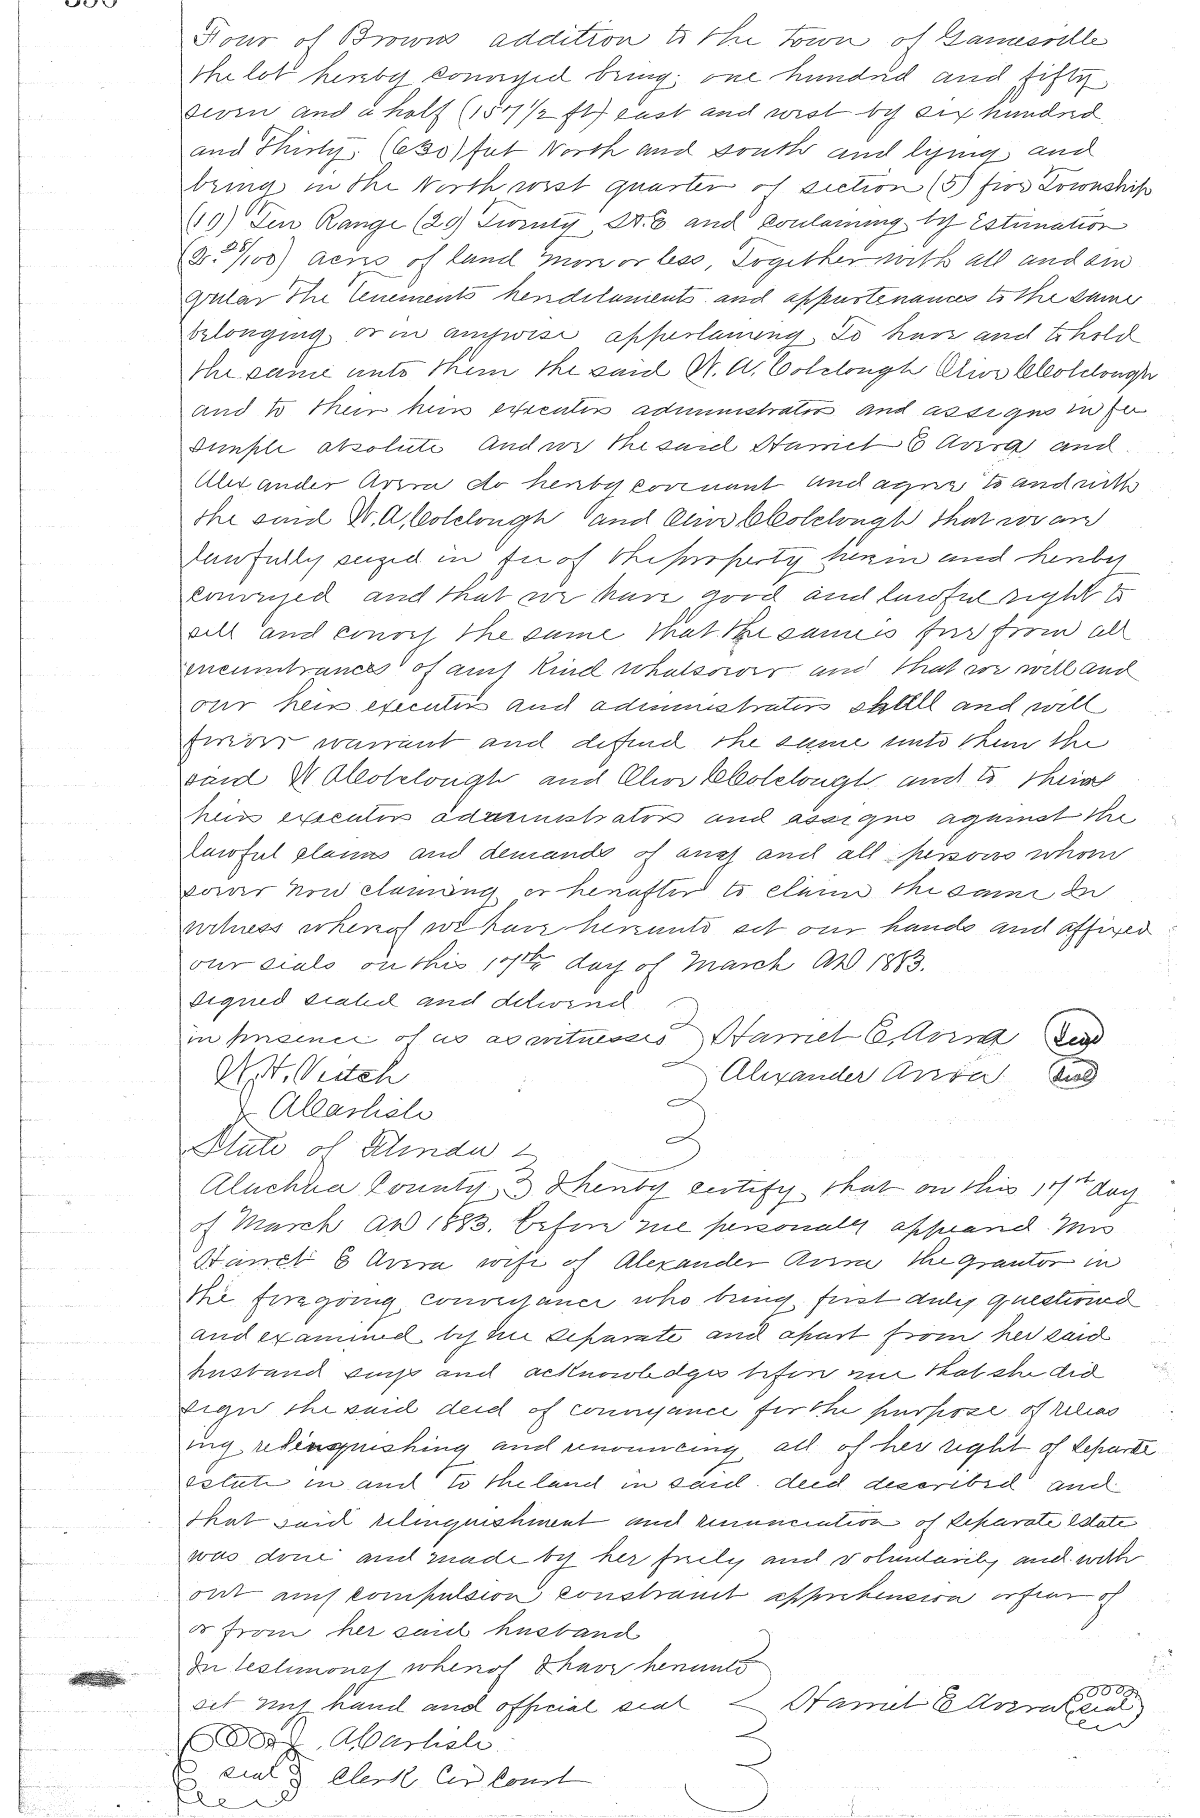 Four of Browns addition to the Town of Gainesville
the lot hereby conveyed being one hundred and fifty
seven and a half (157 1/2 ft) east and west by six hundred
and Thirty (630) feet North and south and lying and
being in the North west quarter of section (5) five Township
(10) Ten Range (20) Twenty S&E and containing by Estimation
(2.28/100) acres of land more or less, Together with all and sin
gular the tenements hereditaments and appurtenances to the same
belonging or in anywise appertaining To have and to hold
the same unto them the said W. A. Colclough Olive C Colclough
and to their heirs executors administrators and assigns in fee
simple absolute And we the said Harriet E Avera and
Alexander Avera do hereby covenant and agree to and with
the said W. A. Colclough and Olive C Colclough that we are
lawfully seized in fee of the property herein and hereby
conveyed and that we have good and lawful right to
sell and convey the same that the same is free from all
encumbrances of any kind whatsoever and that we will and
our heirs executors and administrators shall and will
forever warrant and defend the same unto them the
said W A Colclough and Olive C Colclough and to their
heirs executors administrators and assigns against the
lawful claims and demands of any and all persons whom
soever now claiming or hereafter to claim the same In
witness whereof we have hereunto set our hands and affixed
our seals on this 17th day of March AD 1883.
signed sealed and delivered
in presence of us as witnesses Harriet E, Avera Seal
W. H. Veitch Alexander Avera Seal
J A Carlisle
State of Florida
Aluchua County I hereby certify that on this 17th day
of March AD 1883. before me personally appeared Mrs
Harriet E Avera wife of Alexander Avera the grantor in
the foregoing conveyance who being first duly questioned
and examined by me separate and apart from her said
husband says and acknowledges before me that she did
sign the said deed of conveyance for the purpose of releas
ing relinquishing and renouncing all of her right of separate
estate in and to the land in said deed described and
that said relinquishment and renunciation of separate estate
was done and made by her freely and voluntarily and with
out any compulsion constraint apprehension or fear of
or from her said husband
In testimony whereof I have hereunto
set my hand and official seal Harriet E Avera seal
J. A Carlisle
seal Clerk Cir Court